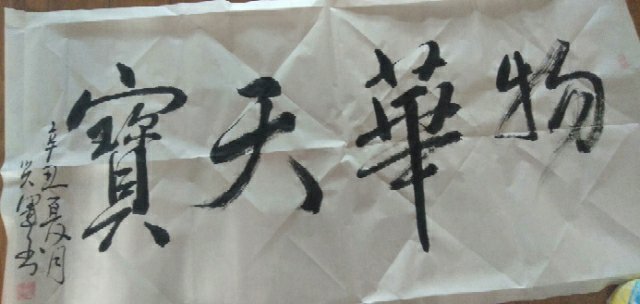 物華天寶
辛丑夏月
书